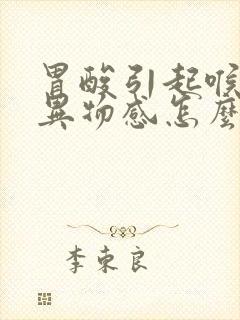 胃酸引起喉
異物感怎麼
李東良